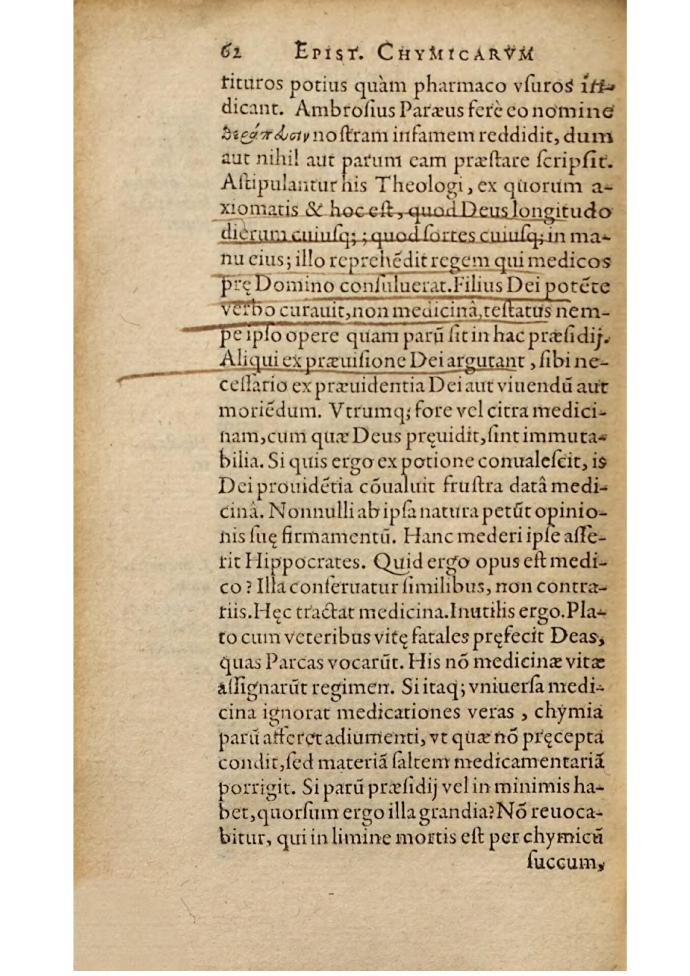 62 EPIST. CHYMICARVM
rituros potius quàm pharmaco vſuros
dicant. Ambroſius Paræus ferè eo nomine
θεράπειαν noſtram infamem reddidit, dum
aut nihil aut parum eam præſtare ſcripſit.
Aſtipulantur his Theologi, ex quorum a-
xiomatis & hoc eſt, quod Deus longitudo
dierum cuiuſq;; quod ſortes cuiuſq; in ma-
nu eius; illo reprehẽdit regem qui medicos
prę Domino conſuluerat. Filius Dei potẽte
verbo curauit, non medicinâ, teſtatus nem-
pe ipſo opere quam parũ ſit in hac præſidij.
Aliqui ex præuiſione Dei argutant, ſibi ne-
ceſſario ex præuidentia Dei aut viuendũ aut
moriẽdum. Vtrumq; fore vel citra medici-
nam, cum quæ Deus pręuidit, ſint immuta-
bilia. Si quis ergo ex potione conualeſcit, is
Dei prouidẽtia cõualuit fruſtra datâ medi-
cinâ. Nonnulli ab ipſa natura petũt opinio-
nis ſuę firmamentũ. Hanc mederi ipſe aſſe-
rit Hippocrates. Quid ergo opus eſt medi-
co? Illa conſeruatur ſimilibus, non contra-
riis. Hęc tractat medicina. Inutilis ergo. Pla-
to cum veteribus vitę fatales pręfecit Deas,
quas Parcas vocarũt. His nõ medicinæ vitæ
aſſignarũt regimen. Si itaq; vniuerſa medi-
cina ignorat medicationes veras, chymia
parũ afferet adiumenti, vt quæ nõ pręcepta
condit, ſed materiã ſaltem medicamentariã
porrigit. Si parũ præſidij vel in minimis ha-
bet, quorſum ergo illa grandia? Nõ reuoca-
bitur, qui in limine mortis eſt per chymicũ
ſuccum,